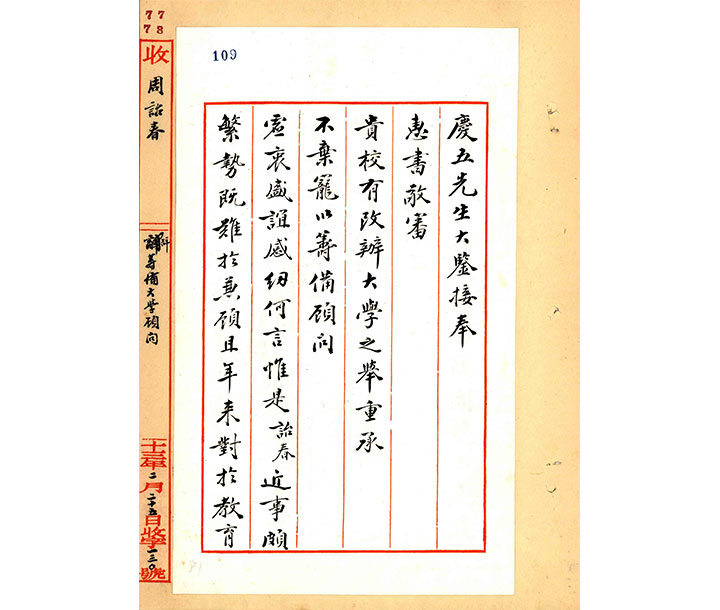 77
78
109
慶五先生大鑒接奉
惠書敬審
貴校有改辦大學之舉重承
不棄寵以籌備顧問
虛衷盛誼感紉何言惟是詒春近事頗
繁勢既難於兼顧且年来對於教育
收
周詒春
辭籌備大學顧問
二十三年二月二十五日收學一三〇號
81